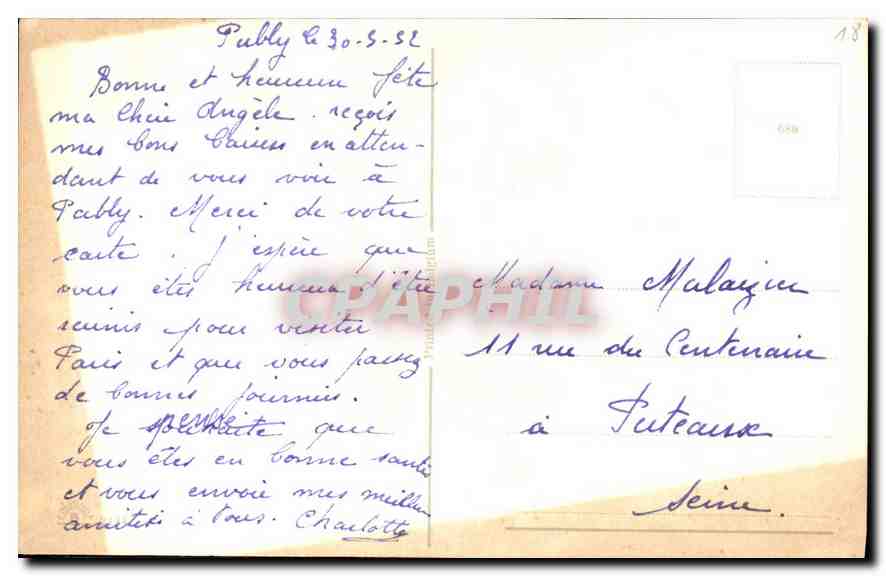 Publy le 30-5-52
Bonne et heureuse fête
ma Chère Angèle. reçois
mes bons baisers en atten-
dant de vous voir à
Publy. Merci de votre
carte. J'espère que
vous êtes heureux d'être
réunis pour visiter
Paris et que vous passez
de bonnes journées.
Je souhaite pense que
vous êtes en bonne santé
et vous envoie mes meilleures
amitiés à tous. Charlotte
18
680
Printed in Belgium
CPAPHIL
Madame
11 rue du Centenaire
à Puteaux
Seine.